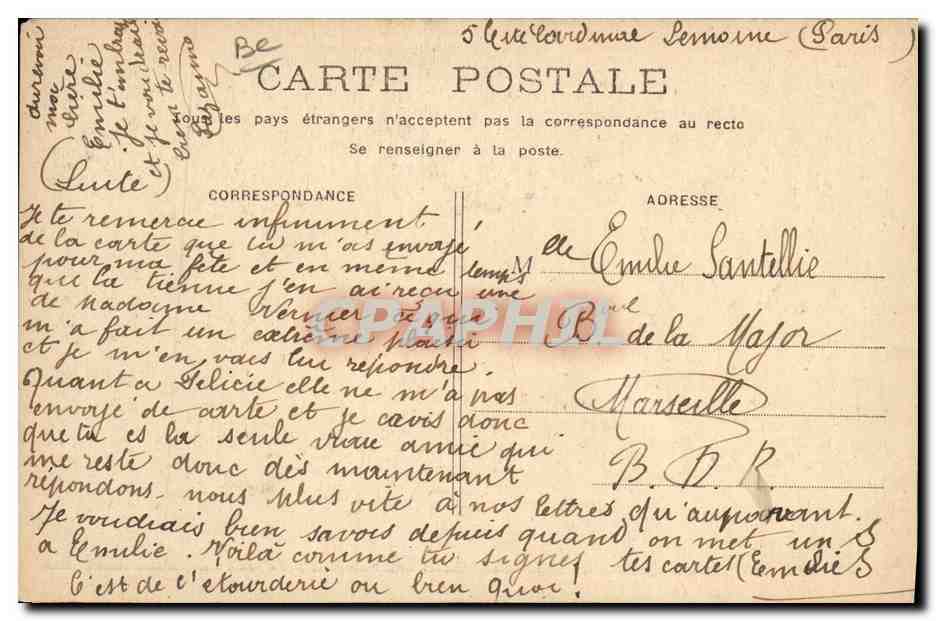 5 Cité Cardinal Lemoine (Paris)
Be
CARTE POSTALE
Tous les pays étrangers n'acceptent pas la correspondance au recto
Se renseigner à la poste.
CORRESPONDANCE
ADRESSE
(Suite)
Je te remercie infiniment
de la carte que tu m'as envoyé
pour ma fête et en même temps
que la tienne j'en ai reçu une
de Madame Vernier ce qui
m'a fait un extrême plaisir
et je m'en vais lui répondre.
Quant a Félicie elle ne m'a pas
envoyé de carte et je crois donc
que tu es la seule vraie amie qui
me reste donc dès maintenant
répondons-nous plus vite à nos lettres qu'auparavant.
Je voudrais bien savoir depuis quand on met un S
a Emilie. Voilà comme tu signes tes cartes (Emilie S
C'est de l'étourderie ou bien quoi!
moi
chère
Emilie
Je t'embrasse
et je voudrais
bien te revoir
Suzanne
Melle Emilie Santellie
Bvd de la Major
Marseille
B. D. R.
CPAPHIL